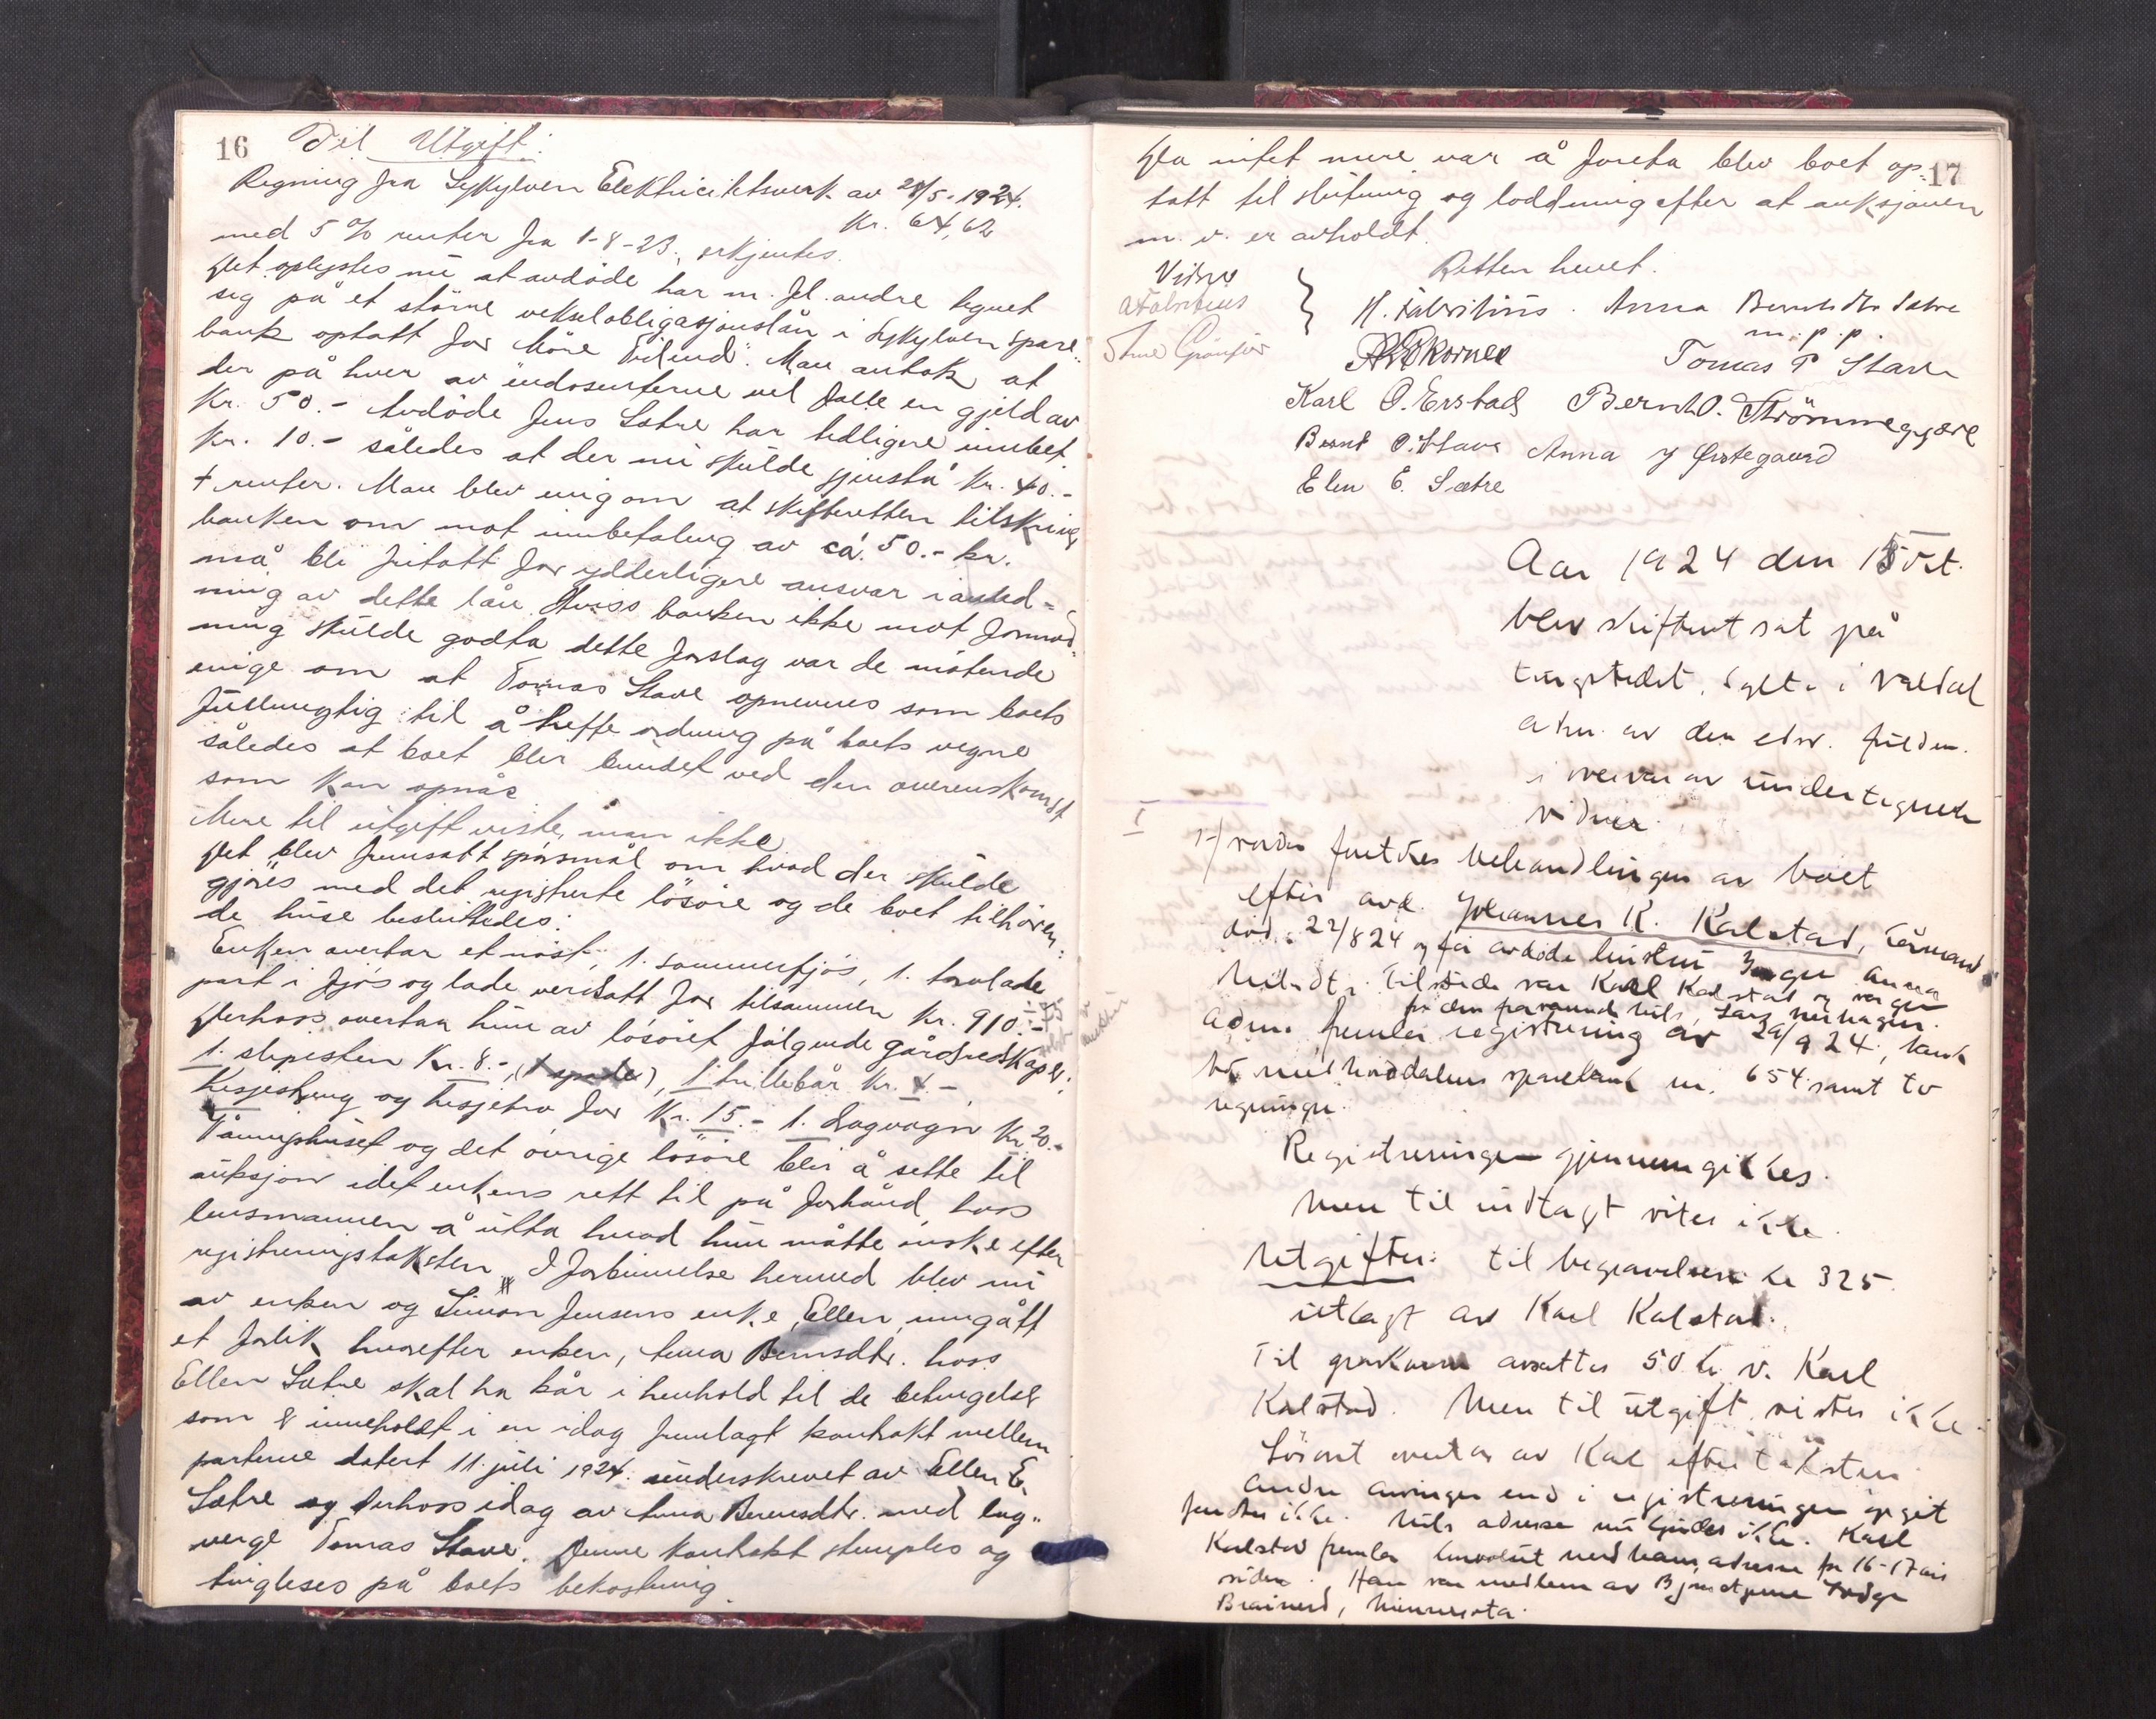 16 Til Utgift:
Regning fra Sykylven Elektricitetsverk av 28/5-1924.
Kr. 64,62
med 5 % renter fra 1-8-23, erkjentes.
Det oplystes nu at avdöde har m. fl. andre tegnet
sig på et större vekselobligasjonslån i Sykylven Spare-
bank optatt for Möre Tidend. Man antok at
der på hver av endosenterne vil falle en gjeld av
Kr. 50.- Avdöde Jens Sætre har tidligere innbet.
Kr. 10.- således at der nu skulde gjenstå Kr. 40.-
+ renter. Man blev enig om at skifteretten tilskriver
banken om mot innbetaling av ca. 50.- kr.
må bli fritatt for ydderligere ansvar i anled-
ning av dette lån. Hviss banken ikke mot formod-
ning skulde godta dette forslag var de mötende
enige om at Tomas Stave opnevnes som boets
fullmegtig til å treffe ordning på boets vegne
således at boet blir bundet ved den overenskomst
som kan opnåes
Mere til utgift visste man ikke
Det blev fremsatt spörsmål om hvad der skulde
gjöres med det registrerte lösöre og de boet tilhören-
de huse besluttedes:
Enken overtar et nöst, 1. sommerfjös, 1. torvlade
part i fjös og lade verdsatt for tilsammen Kr. 910.-
Derhoss overtar hun av lösöret fölgende gårdsredskaper:
1. slipesten Kr. 8.-, (1 spade), 1 trillebår Kr. 4.-
hesjestreng og hesjetro for Kr. 15.- 1. Dragvogn Kr. 20.-
Våningshuset og det övrige lösöre blir å sette til
auksjon idet enkens rett til på forhånd hoss
lensmannen å utta hvad hun måtte önske efter
registreringstaksten. I forbinnelse hermed blev nu
av enken og Simon Jensens enke, Ellen, inngått
et forlik hvorefter enken, Anna Berntsdtr. hoss
Ellen Sætre skal ha kår i henhold til de betingelser
som er inneholdt i en idag fremlagt kontrakt mellem
parterne datert 11. juli 1924. underskrevet av Ellen E.
Sætre og derhoss idag av Anna Berntsdtr. med lag-
verge Tomas Stave. Denne kontrakt stemples og
tingleses på boets bekostning.
17
Da intet mere var å foreta blev boet op-
tatt til slutning og loddning efter at auksjonen
m. v. er avholdt.
Retten hevet.
Vidner
A Fabritius
H. Fabritius. Anna Berntsdtr Sætre
m. p. p.
Tomas P Stave
Karl O. Erstad Bernt O. Strömmegjære
Bernt O. Stave Anna J Ørstegaard
Elen E. Sætre
Aar 1924 den 15 okt.
blev skifteret sat på
tingstedet, Sylte i Valdal
adm. av den edsv. fuldm.
i overvær av undertegnede
vidner.
I
Hvorda foretokes behandlingen av boet
efter avd. Johannes K. Kalstad, kårmand
död. 22/8 24 og før avdöde hustru Inger Anna
Nilsdtr. Tilstede var Karl Kalstad og vergen
for den fraværende Nils, Lars Nerhagen.
Adm. fremla registrering av 29/9 24, bank
bk. med Norddalens sparebank nr. 654 samt to
regninger.
Registreringen gjennemgikkes.
Mere til indtægt vites ikke
Utgifter: til begravelsen kr 325.
utlagt av Karl Kalstad.
Til gravkorn avsattes 50 kr v. Karl
Kalstad. Mere til utgift vistes ikke
Lösöret overtas av Karl efter taksten
Andre arvinger end i registreringen opgit
findes ikke. Nils adresse nu kjendes ikke. Karl
Kalstad fremla konvolut med hans adresse for 16-17 år
siden. Han var medlem av Bjørnstjerne Lodge
Brainerd, Minnesota.